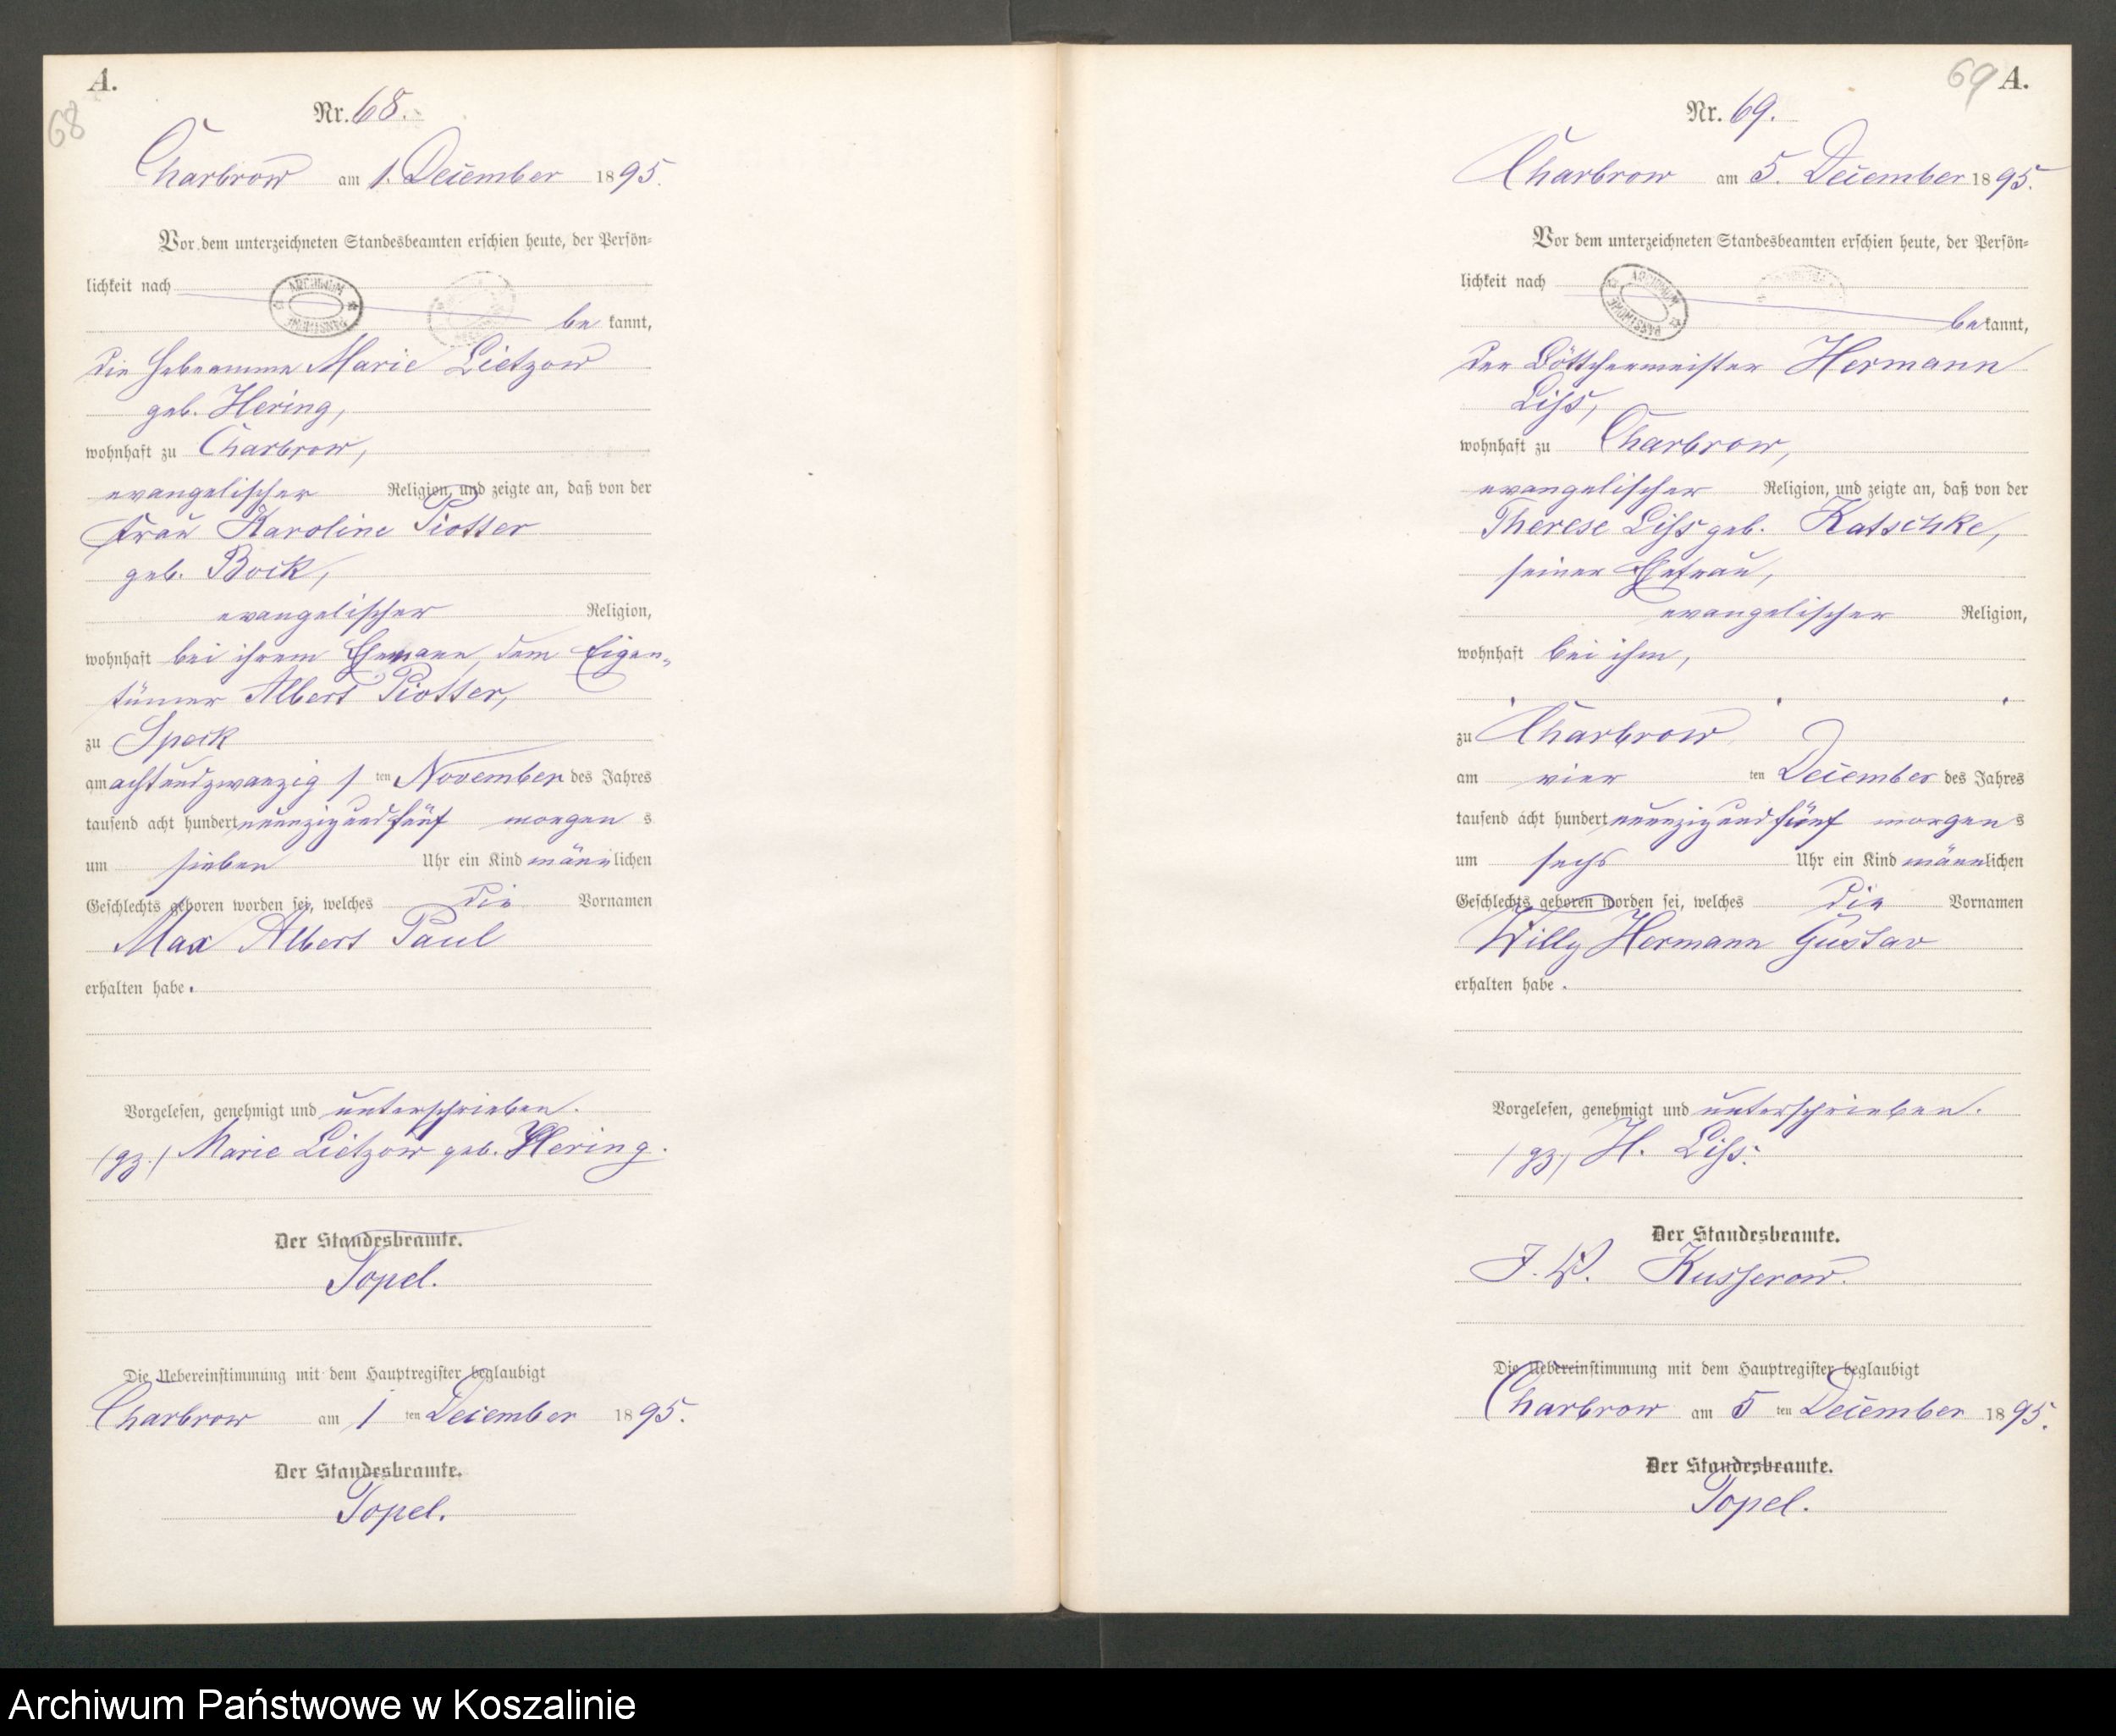 A.
68
Nr. 68.
Charbrow am 1. December 1895.
Vor dem unterzeichneten Standesbeamten erschien heute, der Persön-
lichkeit nach
ARCHIWUM PAŃSTWOWE
be kannt,
die Hebeamme Marie Lietzow
geb. Hering,
wohnhaft zu Charbrow,
evangelischer Religion, und zeigte an, daß von der
Frau Karoline Piotter
geb. Bock,
evangelischer Religion,
wohnhaft bei ihrem Ehemann, dem Eigen-
tümer Albert Piotter,
zu Speck
am achtundzwanzig ten November des Jahres
tausend acht hundert neunzig und fünf morgen s
um sieben Uhr ein Kind männlichen
Geschlechts geboren worden sei, welches die Vornamen
Max Albert Paul
erhalten habe.
Vorgelesen, genehmigt und unterschrieben.
(gz.) Marie Lietzow geb. Hering.
Der Standesbeamte.
Topel.
Die Uebereinstimmung mit dem Hauptregister beglaubigt
Charbrow am 1 ten December 1895.
Der Standesbeamte.
Topel.
69 A.
Nr. 69.
Charbrow am 5. December 1895.
Vor dem unterzeichneten Standesbeamten erschien heute, der Persön-
lichkeit nach
ARCHIWUM PAŃSTWOWE
be kannt,
der Böttchermeister Hermann
Liss,
wohnhaft zu Charbrow,
evangelischer Religion, und zeigte an, daß von der
Therese Liss geb. Katschke,
seiner Ehefrau,
evangelischer Religion,
wohnhaft bei ihm,
zu Charbrow
am vier ten December des Jahres
tausend acht hundert neunzig und fünf morgen s
um sechs Uhr ein Kind männlichen
Geschlechts geboren worden sei, welches die Vornamen
Willy Hermann Gustav
erhalten habe.
Vorgelesen, genehmigt und unterschrieben.
(gz.) H. Liss.
Der Standesbeamte.
J. V. Kusserow.
Die Uebereinstimmung mit dem Hauptregister beglaubigt
Charbrow am 5 ten December 1895.
Der Standesbeamte.
Topel.
Archiwum Państwowe w Koszalinie